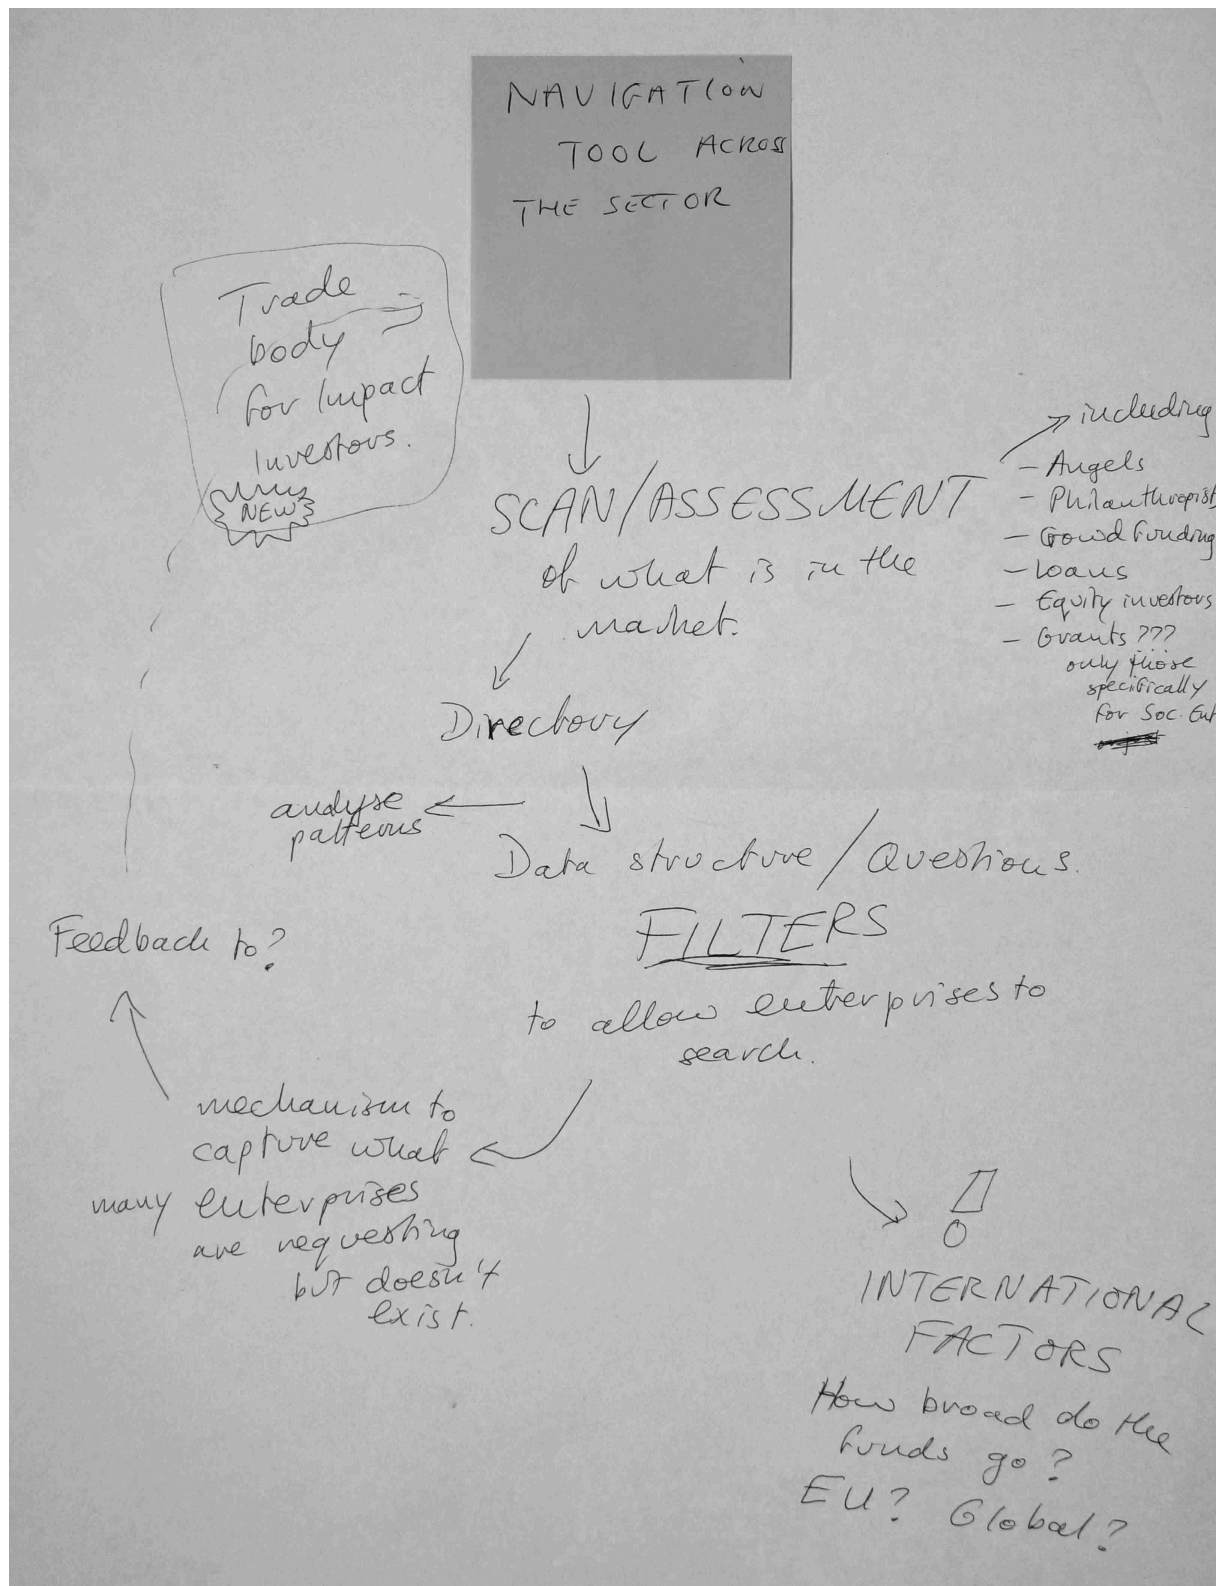 NAVIGATION
TOOL ACROSS
THE SECTOR
Trade
body
for Impact
Investors.
NEW
SCAN/ASSESSMENT
of what is in the
market.
including
- Angels
- Philanthropist
- Crowd Funding
- Loans
- Equity investors
- Grants ???
only those
specifically
for Soc. Ent
Directory
analyse
patterns
Data structure / Questions.
FILTERS
to allow enterprises to
search.
Feedback to?
mechanism to
capture what
many enterprises
are requesting
but doesn't
exist.
!
INTERNATIONAL
FACTORS
How broad do the
funds go?
EU? Global?